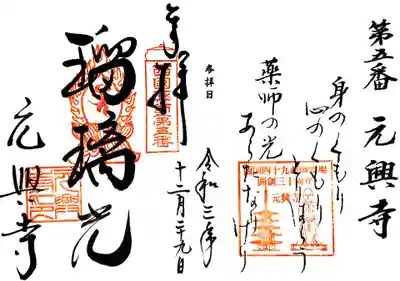 第五番 元興寺
身のくもり
心のくもり
とりはらう
薬師の光
あらたなりけり
参拝日
令和三年
十二月二十九日
奉拝
瑠璃光
元興寺